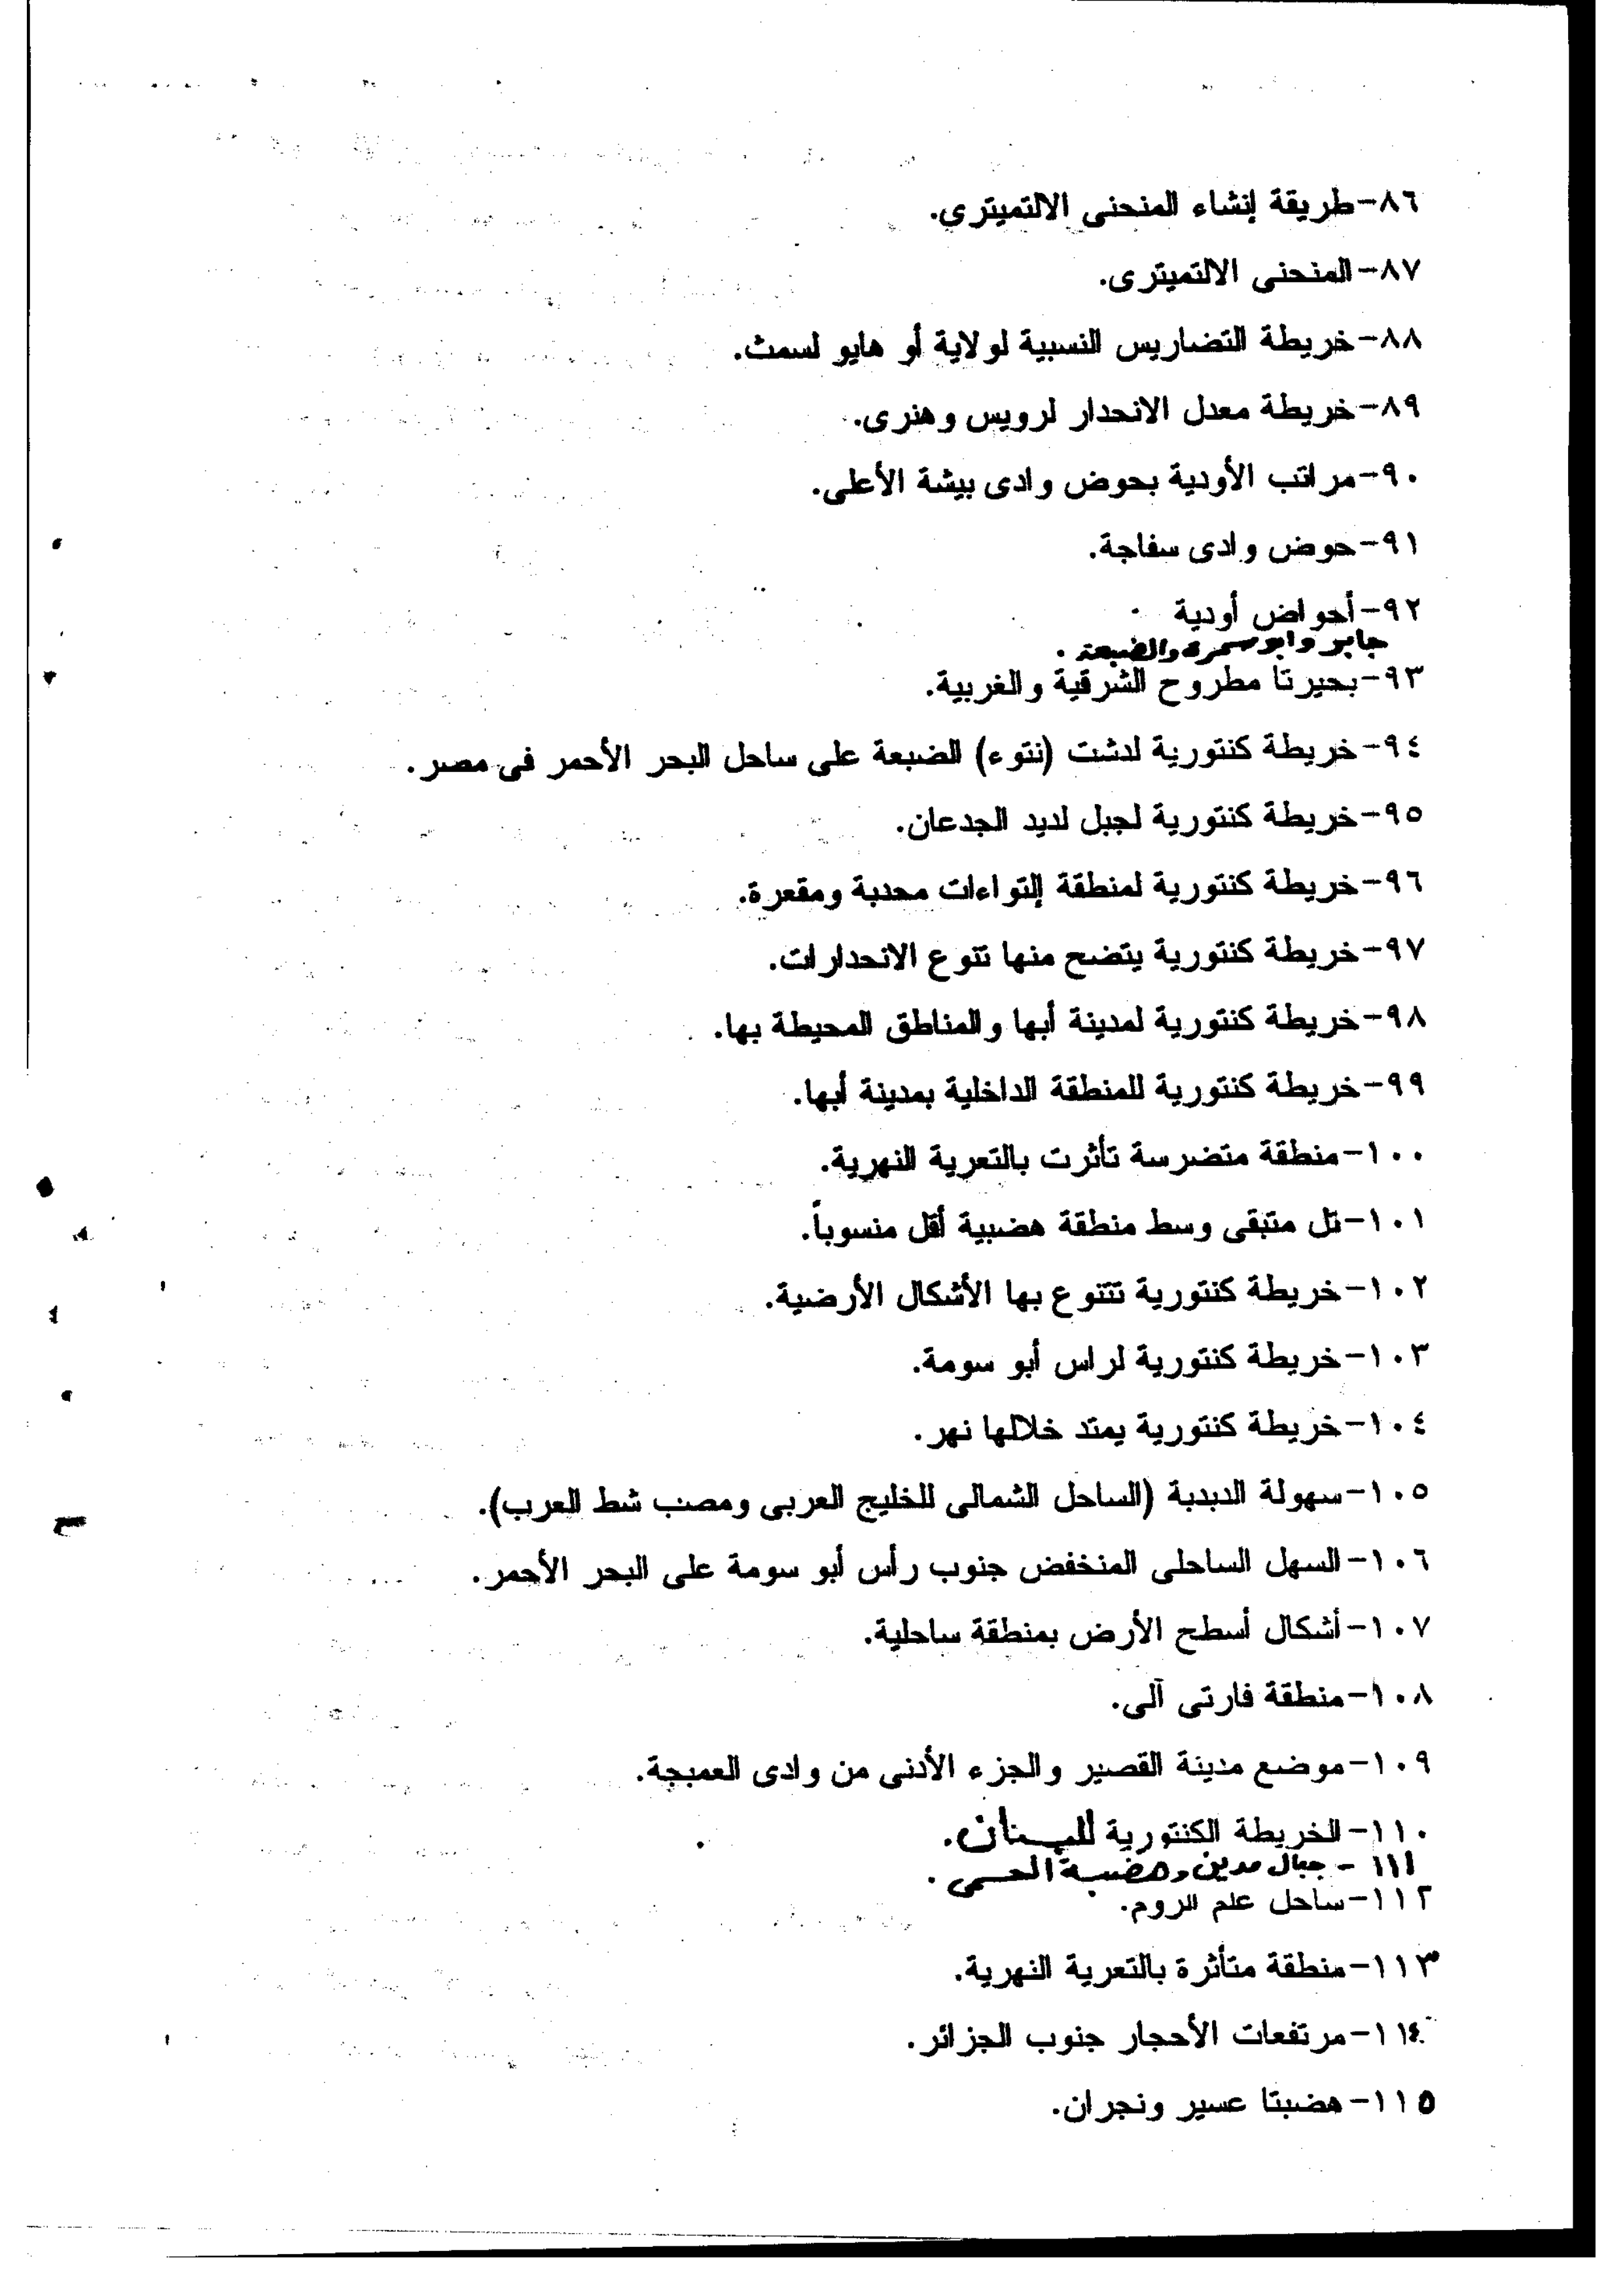 ٨٦-طريقة إنشاء المنحنى الالتميترى.
٨٧-المنحنى الالتميترى.
٨٨-خريطة التضاريس النسبية لولاية أو هايو لسمث.
٨٩-خريطة معدل الانحدار لرويس وهنرى.
٩٠-مراتب الأودية بحوض وادى بيشة الأعلى.
٩١-حوض وادى سفاجة.
٩٢-أحواض أودية
جابر وابو سمرة والضبعة.
٩٣-بحيرتا مطروح الشرقية والغربية.
٩٤-خريطة كنتورية لدشت (نتوء) الضبعة على ساحل البحر الأحمر فى مصر.
٩٥-خريطة كنتورية لجبل لديد الجدعان.
٩٦-خريطة كنتورية لمنطقة إلتواءات محدبة ومقعرة.
٩٧-خريطة كنتورية يتضح منها تنوع الانحدارات.
٩٨-خريطة كنتورية لمدينة أبها والمناطق المحيطة بها.
٩٩-خريطة كنتورية للمنطقة الداخلية بمدينة أبها.
١٠٠-منطقة متضرسة تأثرت بالتعرية النهرية.
١٠١-تل متبقى وسط منطقة هضبية أقل منسوباً.
١٠٢-خريطة كنتورية تتنوع بها الأشكال الأرضية.
١٠٣-خريطة كنتورية لراس أبو سومة.
١٠٤-خريطة كنتورية يمتد خلالها نهر.
١٠٥-سهولة الدبدبة (الساحل الشمالى للخليج العربى ومصب شط العرب).
١٠٦-السهل الساحلى المنخفض جنوب رأس أبو سومة على البحر الأحمر.
١٠٧-أشكال أسطح الأرض بمنطقة ساحلية.
١٠٨-منطقة فارتى آلى.
١٠٩-موضع مدينة القصير والجزء الأدنى من وادى العمبجة.
١١٠-الخريطة الكنتورية للبنان.
١١١ - جبال مدين وهضبة الحسمى.
١١٢-ساحل علم الروم.
١١٣-منطقة متأثرة بالتعرية النهرية.
١١٤-مرتفعات الأحجار جنوب الجزائر.
١١٥-هضبتا عسير ونجران.